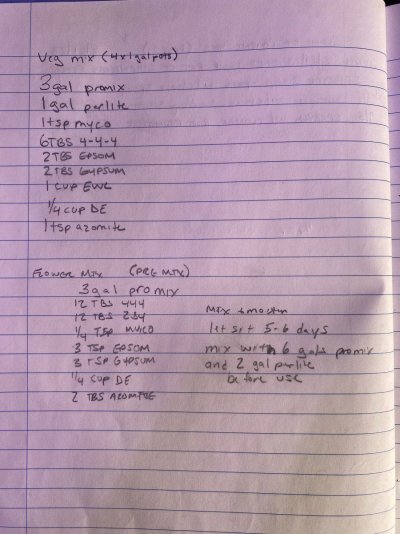 Veg mix (4x1galpots)
3gal promix
1gal perlite
1tsp myco
6TBS 4-4-4
2TBS EPSOM
2TBS GYPSUM
1 CUP EWC
1/4 CUP DE
1tsp azomite
FLOWER MIX (PRE MIX)
3gal promix
12 TBS 444
12 TBS 284
1/4 TSP MYCO
3 TSP EPSOM
3 TSP GYPSUM
1/4 CUP DE
2 TBS AZOMITE
MIX + moisten
let sit 5-6 days
mix with 6 gals promix
and 2 gal perlite
before use